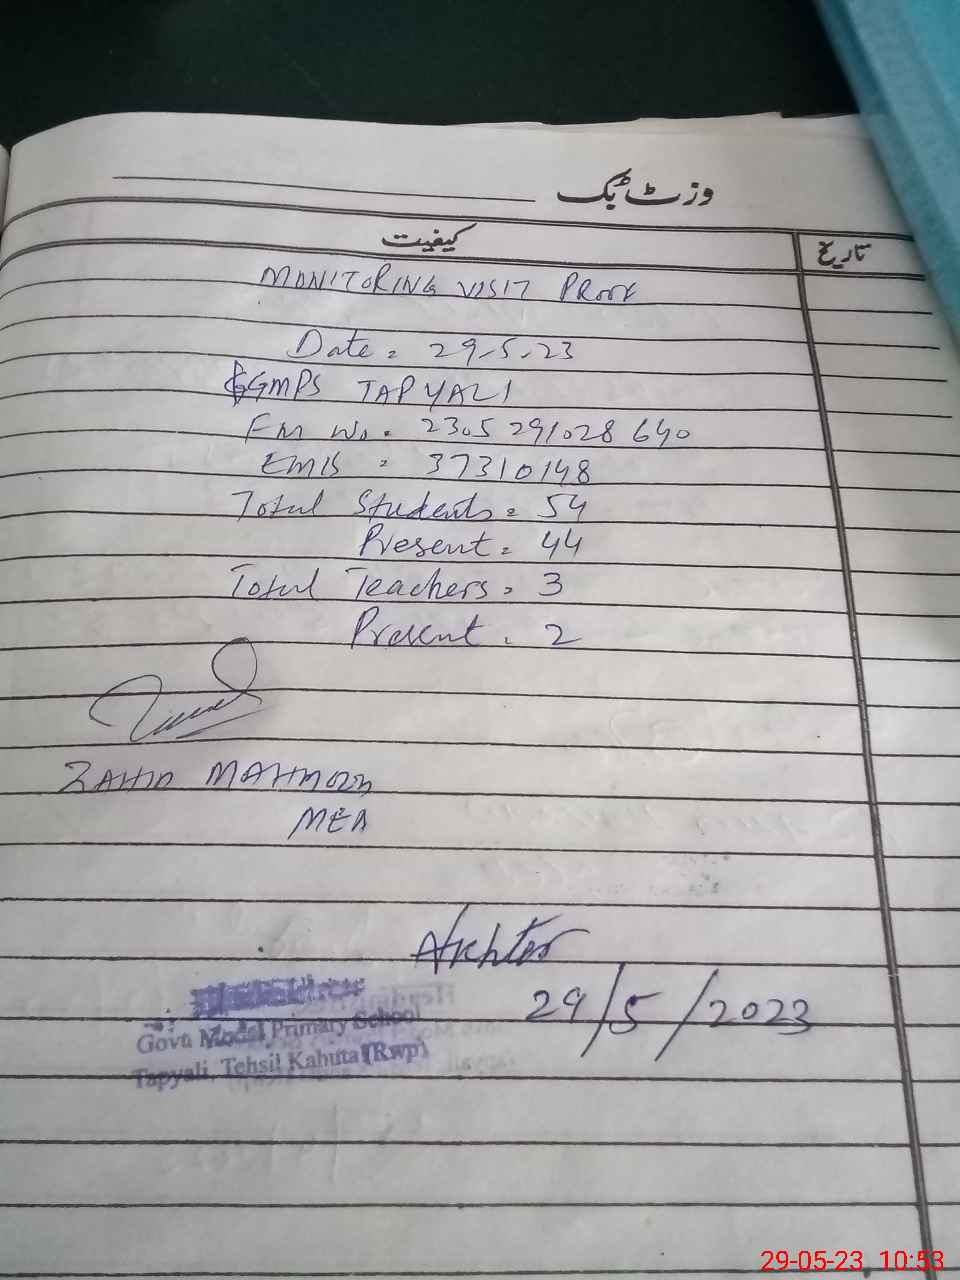 وزٹ بک
کیفیت
تاریخ
MONITORING VISIT PROOF
Date = 29-5-23
GGMPS TAPYALI
FM No. 2305291028640
EMIS = 37310148
Total Students = 54
Present = 44
Total Teachers = 3
Present = 2
ZAHID MAHMOOD
MEA
Akhtar
29/5/2023
Govt Model Primary School
Tapyali, Tehsil Kahuta (Rwp)
29-05-23 10:53